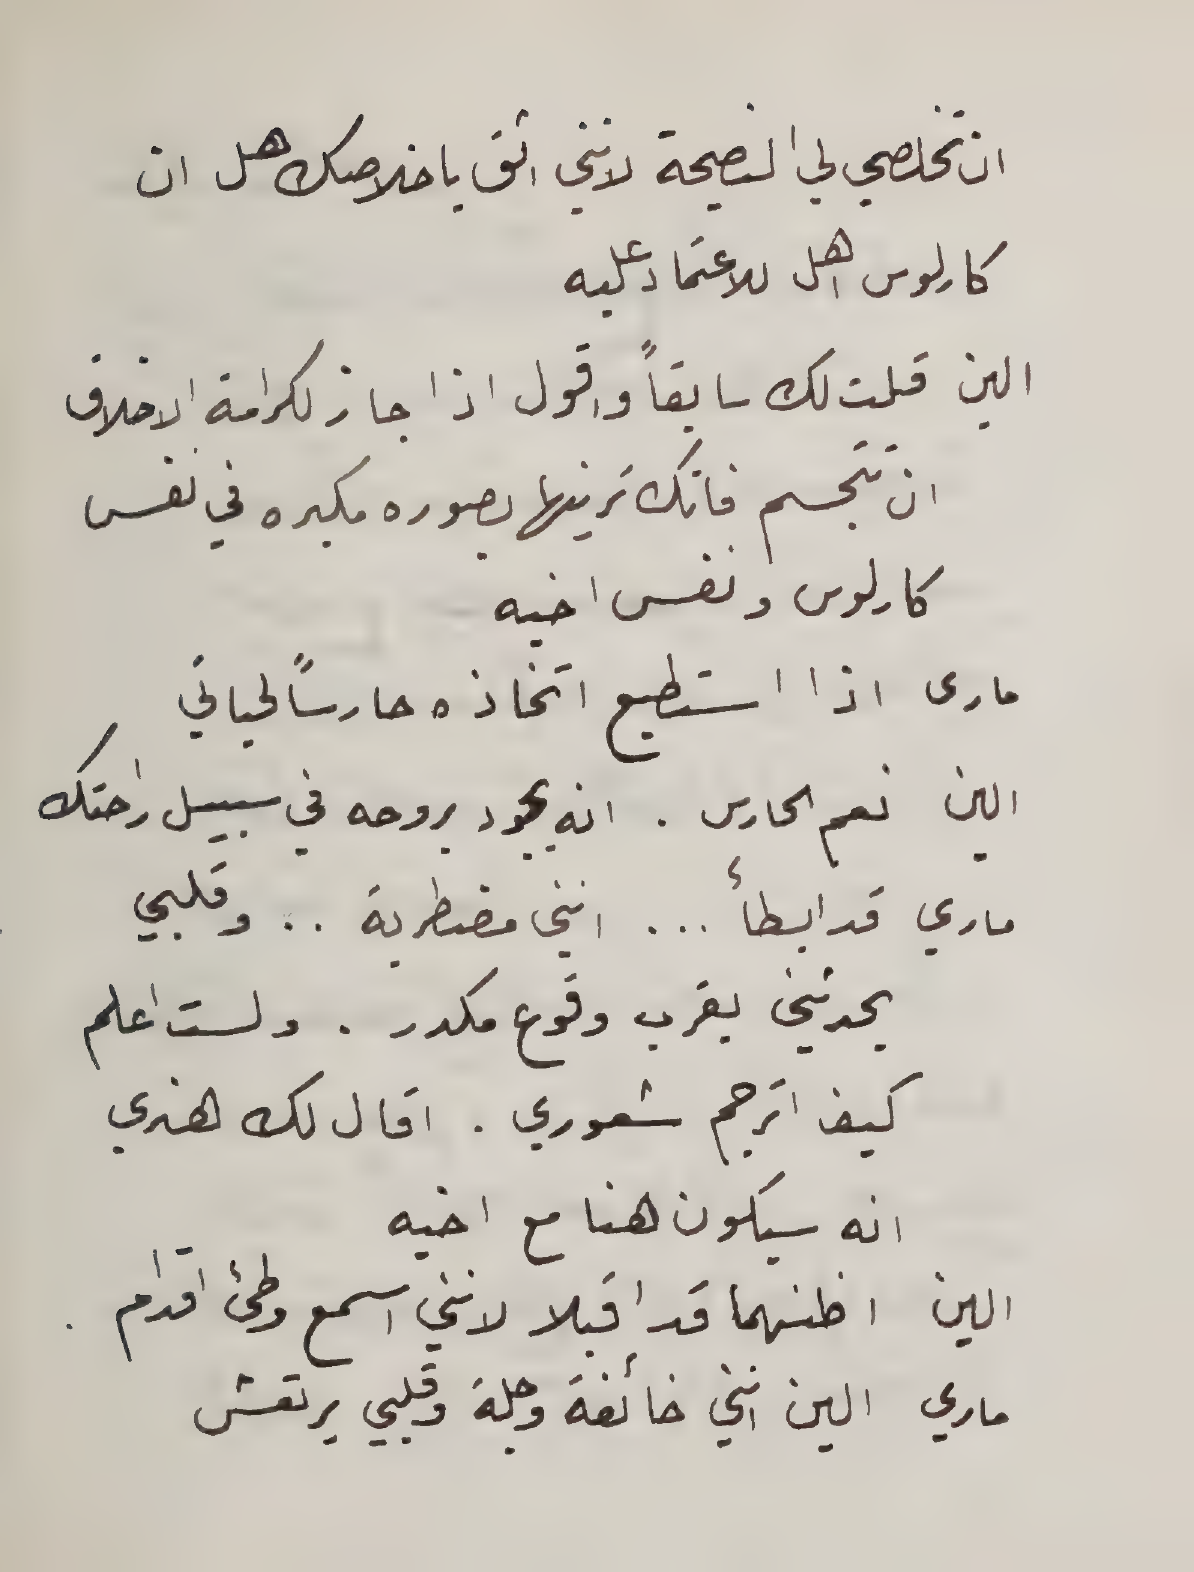 ان تخلصي لي النصيحة لانني اثق باخلاصك هل ان
كارلوس اهل للاعتماد عليه
الين قلت لك سابقاً واقول اذا جاز لكرامة الاخلاق
ان تتجسم فانك ترينها بصوره مكبره في نفس
كارلوس ونفس اخيه
مارى اذا استطيع اتخاذه حارساً لحياتي
الين نعم الحارس . انه يجود بروحه في سبيل راحتك
ماري قد ابطأ ... انني مضطربة .. وقلبي
يحدثني بقرب وقوع مكدر . ولست اعلم
كيف اترجم شعوري . اقال لك هنري
انه سيكون هنا مع اخيه
الين اظنهما قد اقبلا لانني اسمع وطئ اقدام .
ماري الين انني خائفة وجلة وقلبي يرتعش